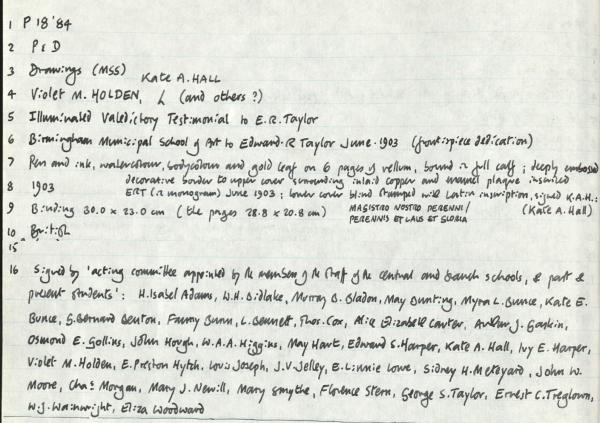 1 P 18'84
2 P & D
3 Drawings (MSS)
Kate A. HALL
4 Violet M. HOLDEN, (and others?)
5 Illuminated Valedictory Testimonial to E.R. Taylor
6 Birmingham Municipal School of Art to Edward R Taylor June 1903 (frontispiece dedication)
7 Pen and ink, watercolour, bodycolour and gold leaf on 6 pages of vellum, bound in full calf; deeply embossed
decorative border to upper cover surrounding inlaid copper and enamel plaque inscribed
8 1903 ERT (in monogram) June 1903; lower cover blind stamped with Latin inscription, signed K.A.H.:
9 Binding 30.0 x 23.0 cm (the pages 28.8 x 20.8 cm) MAGISTRO NOSTRO PERENNI / (Kate A. Hall)
PERENNIS ET LAUS ET GLORIA
10 British
15
16 Signed by 'acting committee appointed by the members of the staff of the central and branch schools, & past &
present students': H. Isabel Adams, W.H. Bidlake, Murray B. Bladon, May Bunting, Myra L. Bunce, Kate E.
Bunce, G. Bernard Benton, Fanny Bunn, L. Bennett, Thos. Cox, Alice Elizabeth Carter, Arthur J. Gaskin,
Osmond E. Gollins, John Hough, W.A.A. Higgins, May Hart, Edward S. Harper, Kate A. Hall, Ivy E. Harper,
Violet M. Holden, E. Preston Hytch, Louis Joseph, J.V. Jelley, E. Linnie Lowe, Sidney H. Meteyard, John W.
Moore, Chas Morgan, Mary J. Newill, Mary Smythe, Florence Stern, George S. Taylor, Ernest C. Treglown,
W.J. Wainwright, Eliza Woodward